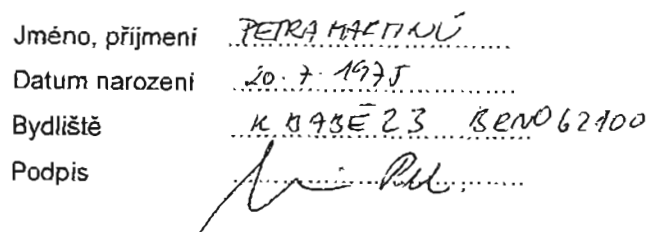 Jméno, příjmení PETRA MARTINŮ
Datum narození 20.7.1975
Bydliště K BABĚ 23 BRNO 62100
Podpis